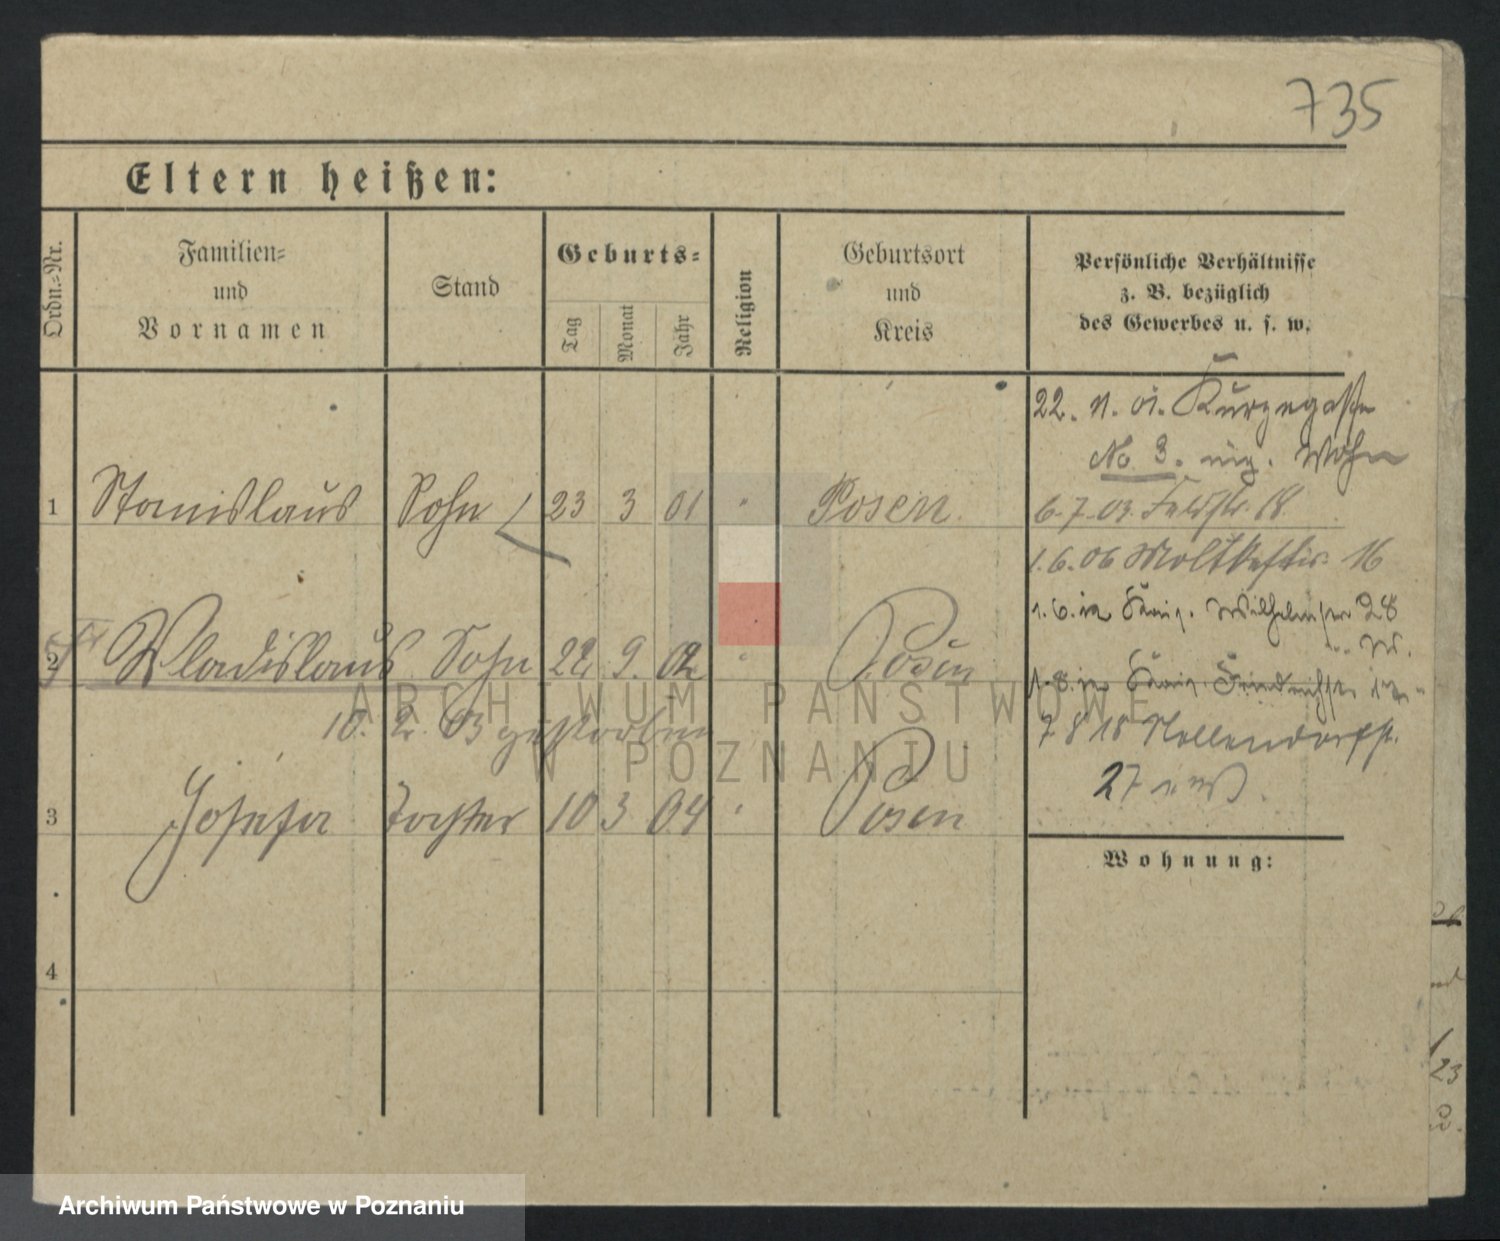 735
Eltern heißen:
Ordn.-Nr.
Familien- und Vornamen
Stand
Geburts-
Tag
Monat
Jahr
Religion
Geburtsort und Kreis
Persönliche Verhältnisse
z. B. bezüglich
des Gewerbes u. s. w.
22. 11. 01. Kurzegasse
No 3. Wohn
1 Stanislaus Sohn 23 3 01 " Posen
6.7.03. Feldstr. 18
1.6.06 Moltkestr. 16
1.6. Wilhelmstr 28
2 Wladislaus Sohn 22 9. 02 " Posen
10. 2. 03 gestorben
1.8. Friedrichstr
7 8 18 Nollendorfst.
27
3 Josefa Tochter 10 3 04 " Posen
Wohnung:
4
ARCHIWUM PAŃSTWOWE
W POZNANIU
23
Archiwum Państwowe w Poznaniu